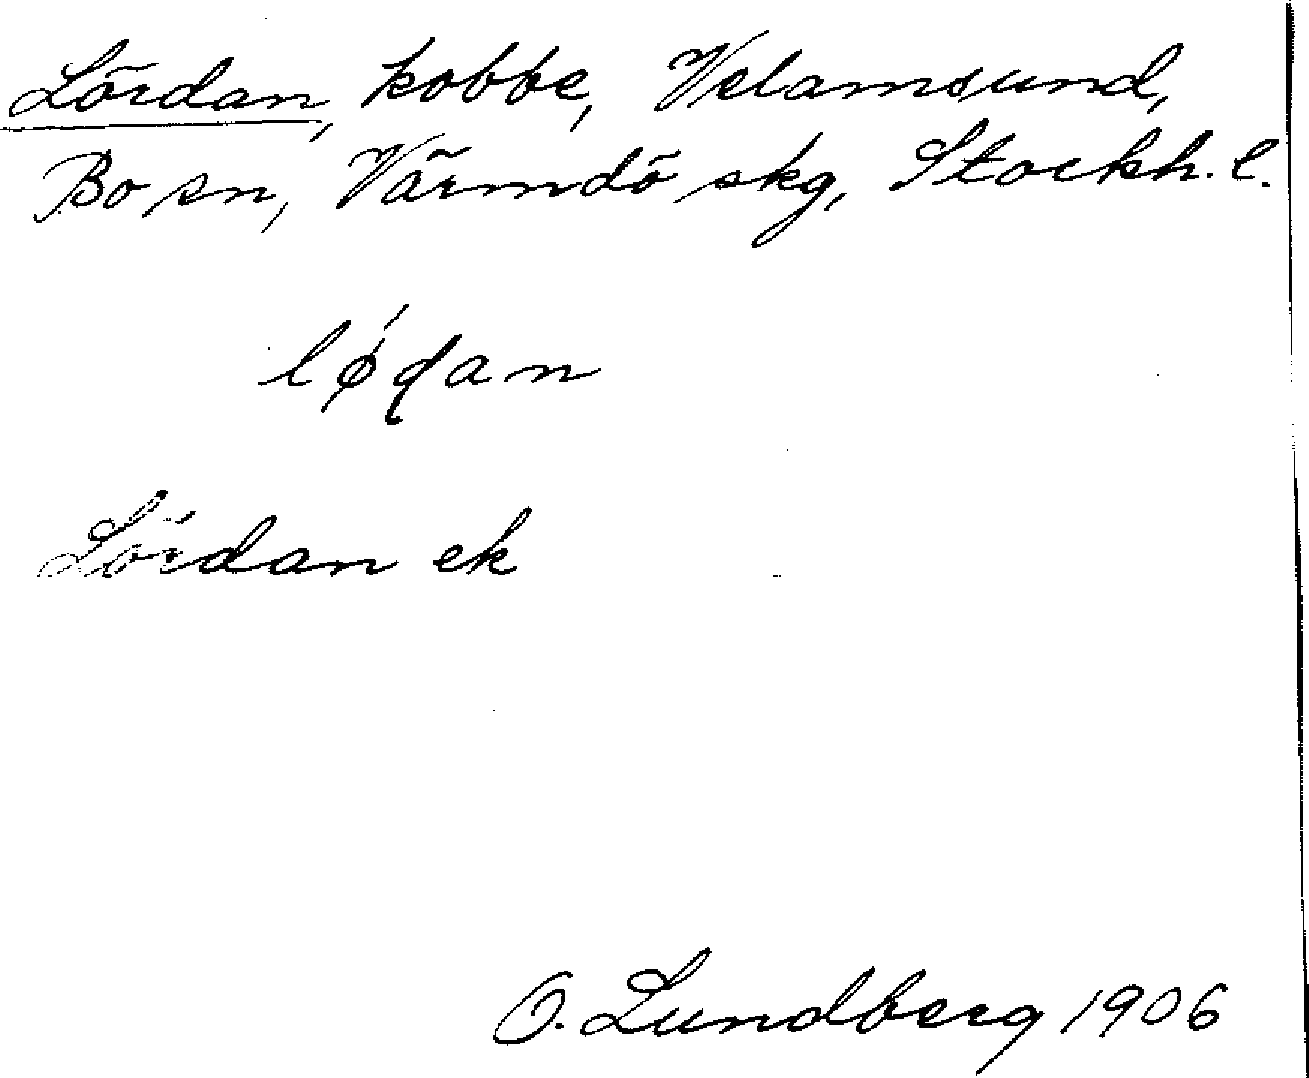 Lördan, kobbe, Velamsund,
Bo sn, Värmdö skg, Stockh. l.
lǿɖan
Lördan ek
O. Lundberg 1906